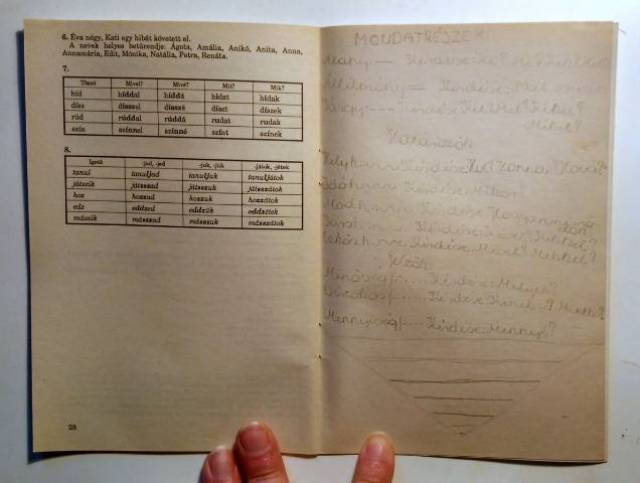 6. Éva négy, Kati egy hibát követett el.
A nevek helyes betűrendje: Ágota, Amália, Anikó, Anita, Anna,
Annamária, Edit, Mónika, Natália, Petra, Renáta.
7.
Tőszó Mivel? Mivé? Mit? Mik?
híd híddal híddá hidat hidak
dísz dísszel dísszé díszt díszek
rúd rúddal rúddá rudat rudak
szín színnel színné színt színek
8.
Igető -jad, -jed -juk, -jük -játok, -jétek
tanul tanuljad tanuljuk tanuljátok
játszik játsszad játsszuk játsszátok
hoz hozzad hozzuk hozzátok
edz eddzed eddzük eddzétek
mászik másszad másszuk másszátok
28
MONDATRÉSZEK
Alany — Kérdése: Ki? Mi? Kik? Mik?
Állítmány — Kérdése:
Tárgy --- Kérdése: Kit? Mit? Kiket?
Miket?
Határozók
Helyhat. Kérdése: Hol? Honnan? Hová?
Időhat. Kérdése: Mikor?
Módhat. Kérdése: Hogyan?
Kérdése:
Kérdése: Mivel? Mikkel?
Jelzők
Minőségj. ... Kérdése: Milyen?
Birtokosj. ... Kérdése: Kinek a? Minek a?
Mennyiségj. ... Kérdése: Mennyi?